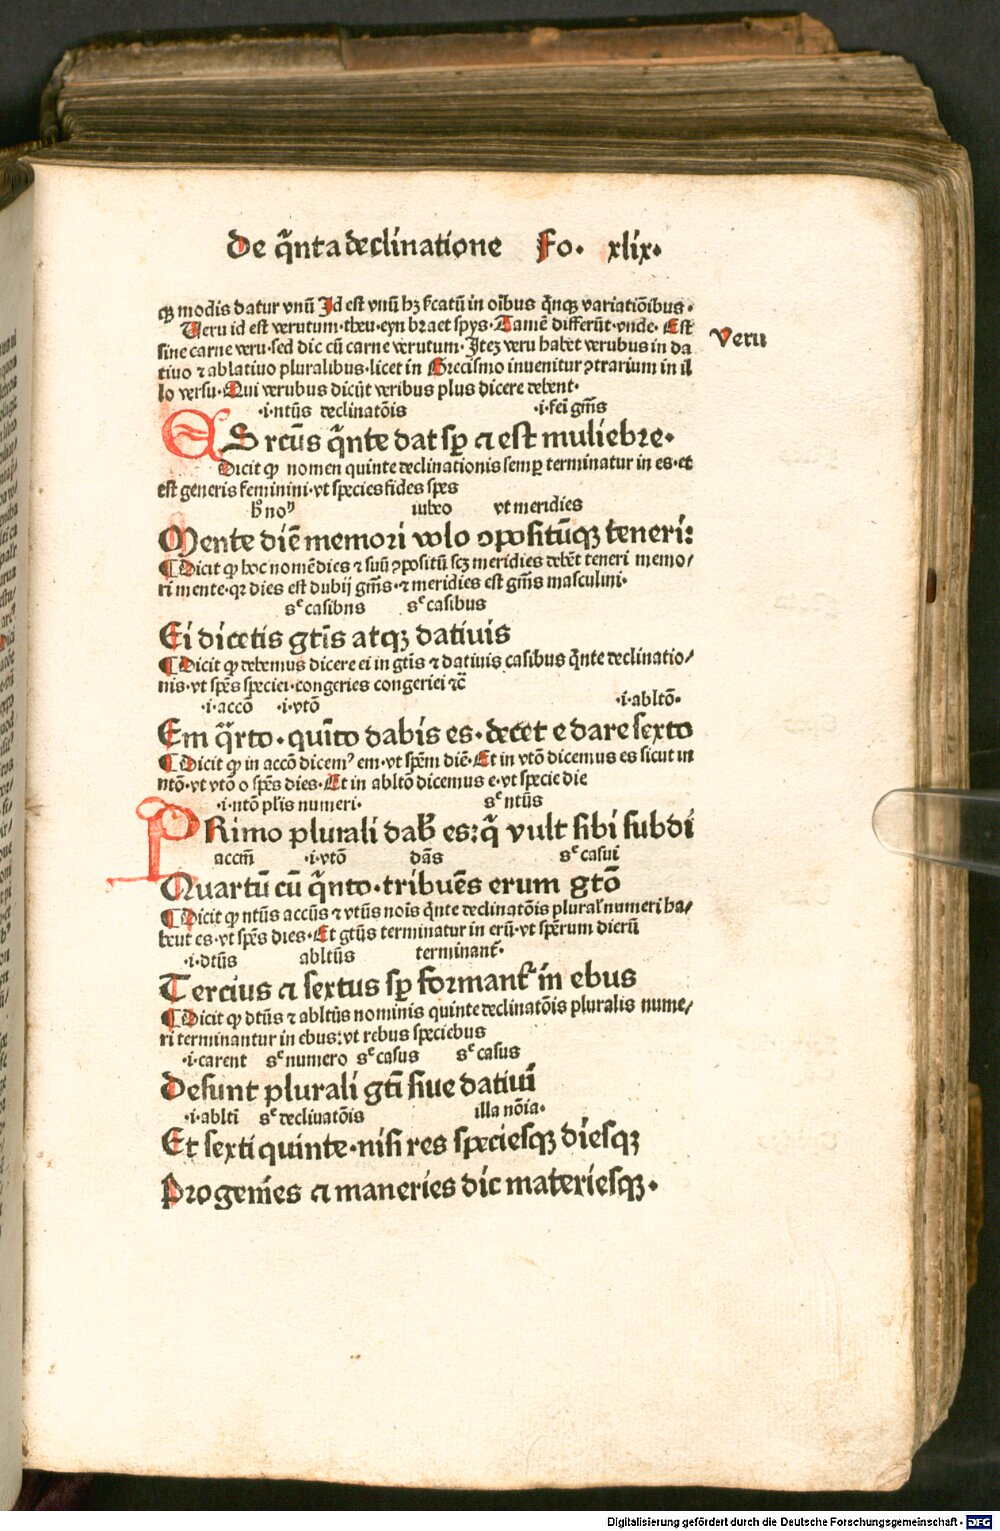 De q̄nta declinatione Fo. xlix.
qꝫ modis datur vnū Id est vnū hꝫ ſcatū in oībus q̄nqꝫ variatiōibus.
Ueru id est verutum. theu. eyn braet spys. Tamē differūt. vnde. Est
sine carne veru. sed dic cū carne verutum. Itez veru habet verubus in da
tiuo ⁊ ablatiuo pluralibus. licet in Grecismo inuenitur ꝯtrarium in il
lo versu. Qui verubus dicūt veribus plus dicere debent.
Veru
.i. ntūs declinatōis .i. fei gm̄s
AS rectus q̄nte dat sꝑ ⁊ est muliebre.
Dicit ꝙ nomen quinte declinationis semꝑ terminatur in es. et
est generis feminini. vt species fides spes
iubeo vt meridies
Mente diē memori volo ꝯpositūqꝫ teneri:
¶ Dicit ꝙ hoc nomē dies ⁊ suū ꝯpositū scꝫ meridies debēt teneri memo/
ri mente. qꝛ dies est dubij gm̄s. ⁊ meridies est gm̄s masculini.
sᶜ casibns sᶜ casibus
Ei dicetis gtīs atqꝫ datiuis
¶ Dicit ꝙ debemus dicere ei in gtīs ⁊ datiuis casibus q̄nte declinatio/
nis. vt spēs speciei. congeries congeriei ⁊c̄
.i. accō .i. vtō .i. abltō.
Em q̄rto. quīto dabis es. decet e dare sexto
¶ Dicit ꝙ in accō dicemꝰ em. vt spēm diē. Et in vtō dicemus es sicut in
ntō. vt vtō o spēs dies. Et in abltō dicemus e. vt specie die
.i. ntō plīs numeri. sᶜ ntūs
PRimo plurali dab̄ es: q̄ vult sibi subdi
accm̄ .i. vtō dās sᶜ casui
Quartū cū q̄nto. tribuēs erum gtō
¶ Dicit ꝙ ntūs accūs ⁊ vtūs noīs q̄nte declinatōis plural' numeri ha/
beut es. vt spēs dies. Et gtūs terminatur in erū. vt spērum dierū
.i. dtūs abltūs terminant̄.
Tercius ⁊ sextus sꝑ formant̄ in ebus
¶ Dicit ꝙ dtūs ⁊ abltūs nominis quinte declinatōis pluralis nume/
ri terminantur in ebus: vt rebus speciebus
.i. carent sᶜ numero sᶜ casus sᶜ casus
Desunt plurali gtī siue datiui
.i. abltī sᶜ decliuatōis illa nōia.
Et sexti quinte. nisi res speciesqꝫ diesqꝫ
Progenīes ⁊ maneries dic materiesqꝫ.
Digitalisierung gefördert durch die Deutsche Forschungsgemeinschaft - DFG